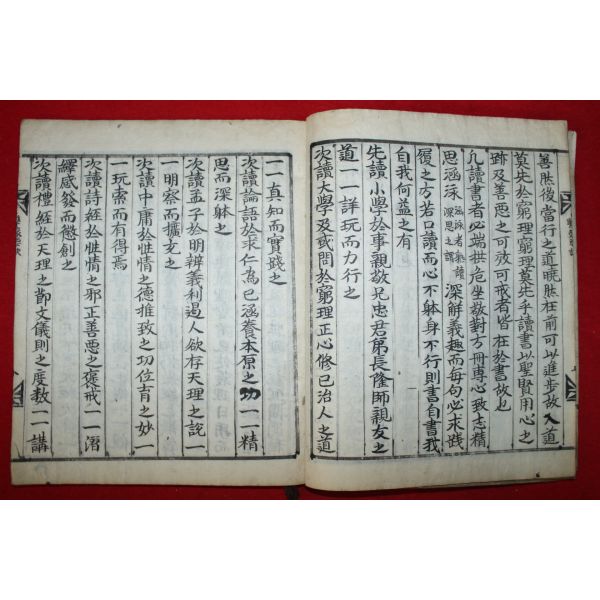 善然後當行之道曉然在前可以進步故入道
莫先於窮理窮理莫先乎讀書以聖賢用心之
跡及善惡之可效可戒者皆在於書故也
凡讀書者必端拱危坐敬對方冊專心致志精
思涵泳涵泳者熟讀深思之謂深解義趣而每句必求踐
履之方若口讀而心不體身不行則書自書我
自我何益之有
先讀小學於事親敬兄忠君弟長隆師親友之
道一一詳玩而力行之
次讀大學及或問於窮理正心修己治人之道
一一真知而實踐之
次讀論語於求仁為己涵養本原之功一一精
思而深躰之
次讀孟子於明辨義利遏人欲存天理之說一
一明察而擴充之
次讀中庸於性情之德推致之功位育之妙一
一玩索而有得焉
次讀詩經於性情之邪正善惡之褒戒一一潛
繹感發而懲創之
次讀禮經於天理之節文儀則之度數一一講